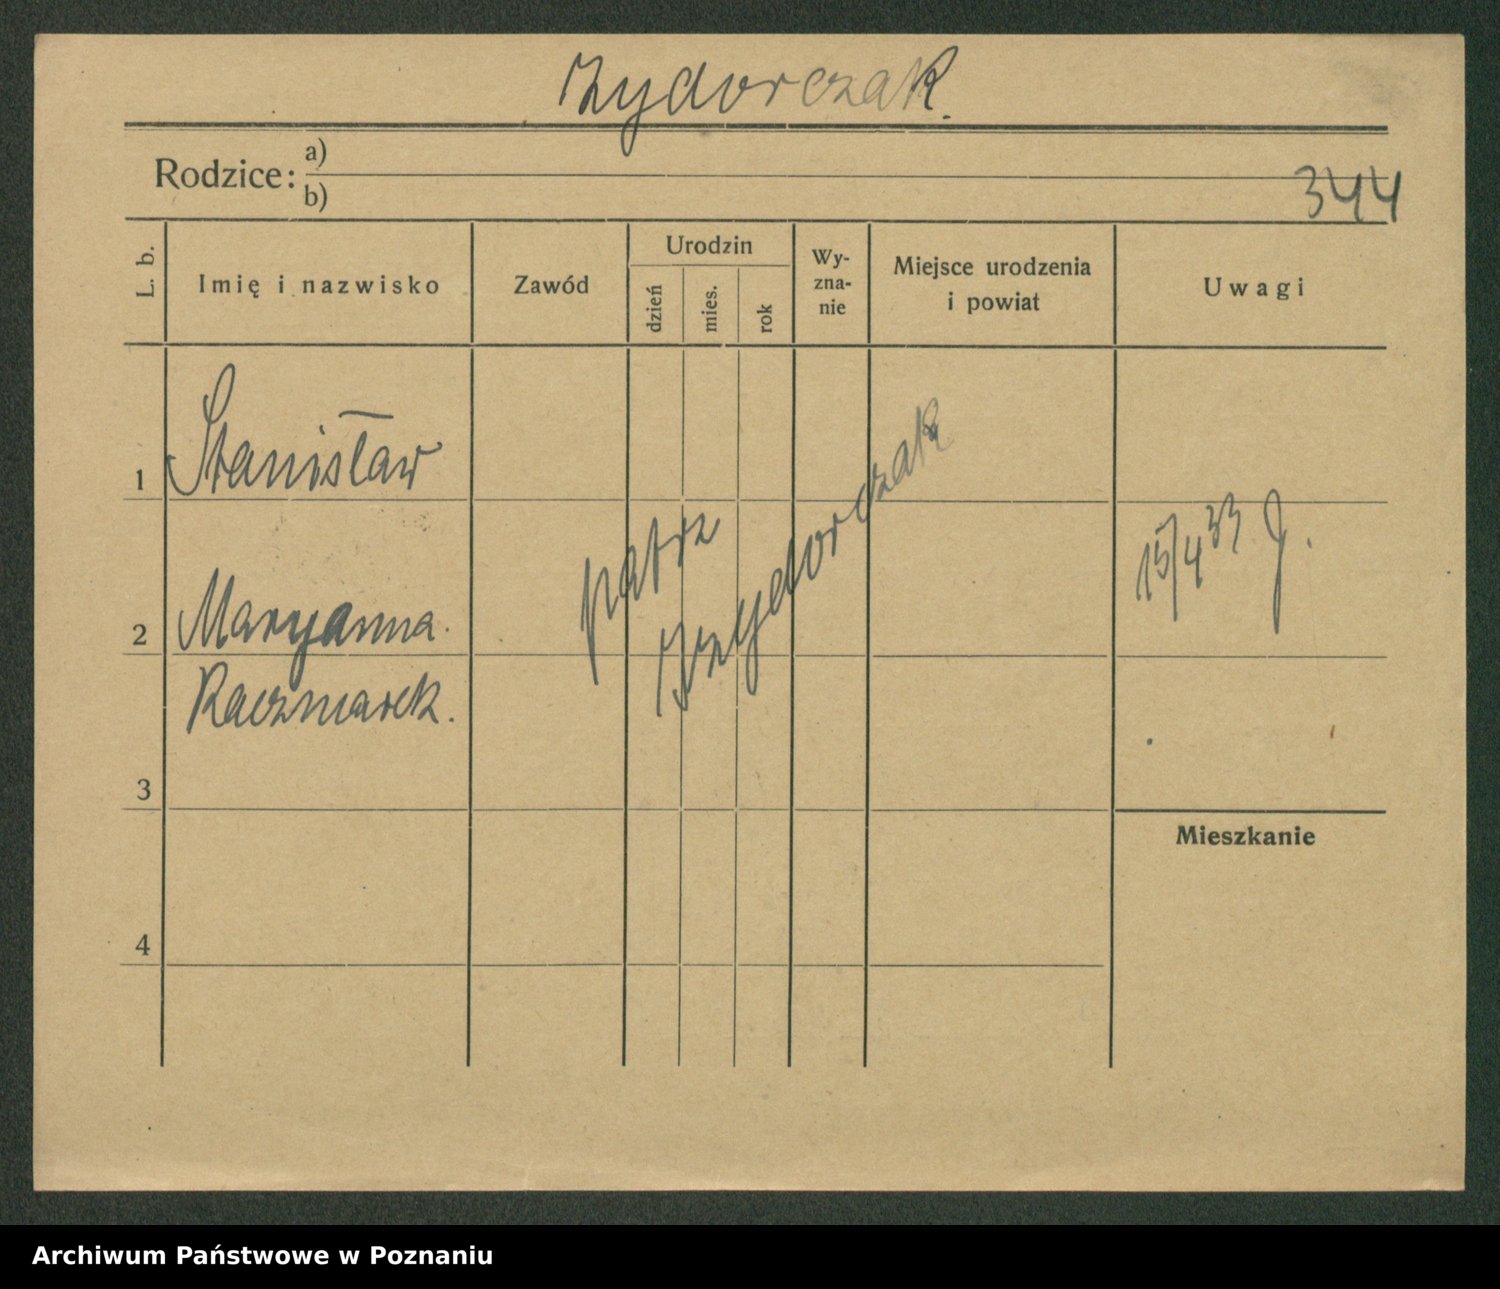 Zydorczak.
Rodzice:
a)
b)
344
L. b.
Imię i nazwisko
Zawód
Urodzin
dzień
mies.
rok
Wy-
zna-
nie
Miejsce urodzenia
i powiat
Uwagi
1
Stanisław
2
Maryanna
Kaczmarek.
patrz
Izydorczak
15/4 33 J.
3
Mieszkanie
4
Archiwum Państwowe w Poznaniu